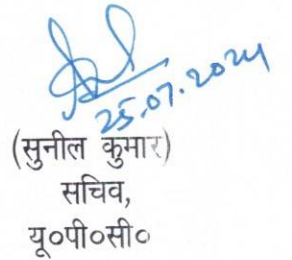 25.07.2024
(सुनील कुमार)
सचिव,
यू०पी०सी०